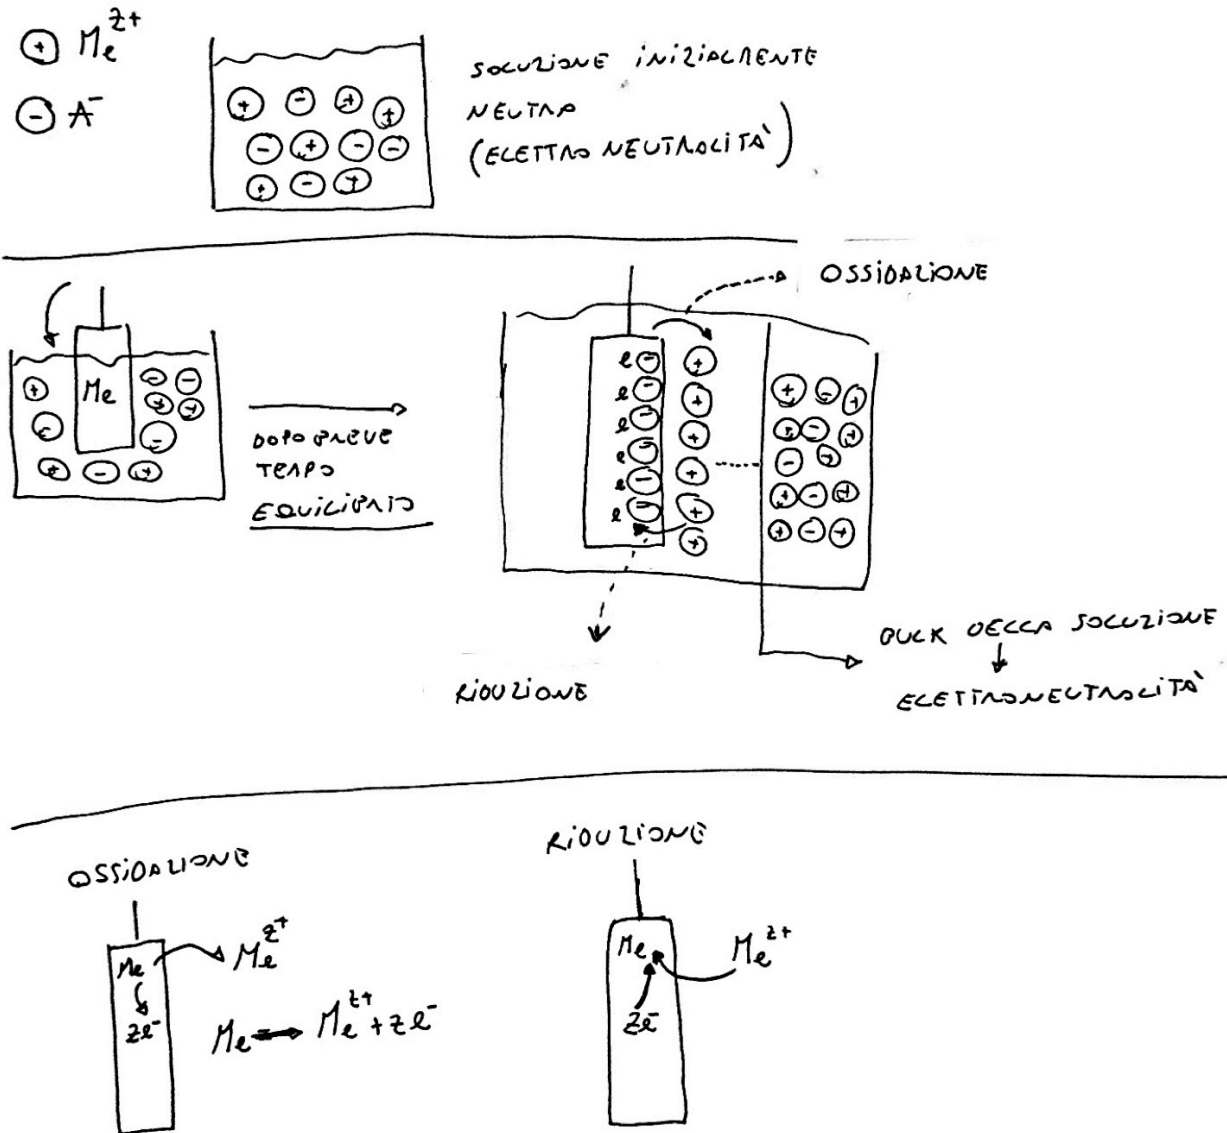 + Me^z+
- A^-
SOLUZIONE INIZIALMENTE
NEUTRA
(ELETTRO NEUTRALITÀ)
+ - + +
- + - -
+ - +
OSSIDAZIONE
Me
DOPO BREVE
TEMPO
EQUILIBRIO
e -
e -
e -
e -
e -
e -
RIDUZIONE
BULK DELLA SOLUZIONE
ELETTRONEUTRALITÀ
OSSIDAZIONE
Me
Me^z+
ze^-
Me → Me^z+ + ze^-
RIDUZIONE
Me
Me^z+
ze^-